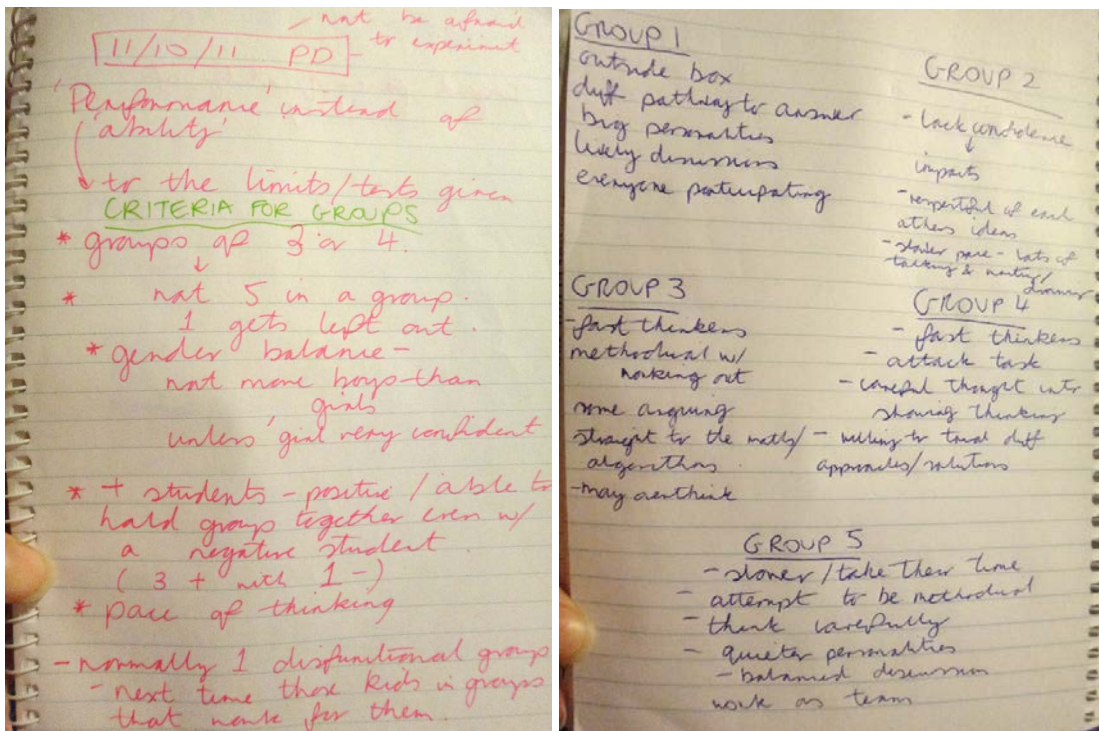 not be afraid
to experiment
11/10/11 PD
'Performance' instead of
'ability'
to the limits/tests given
CRITERIA FOR GROUPS
* groups of 3 or 4.
* not 5 in a group.
1 gets left out.
* gender balance -
not more boys than
girls
unless girl very confident
* + students - positive / able to
hold group together even w/
a negative student
(3 + with 1 -)
* pace of thinking
- normally 1 disfunctional group
- next time those kids in groups
that work for them.
GROUP 1
outside box
diff pathway to answer
big personalities
lively discussions
everyone participating
GROUP 2
- lack confidence
impacts
- respectful of each
others ideas
- slower pace - lots of
talking & writing/
GROUP 3
- fast thinkers
methodical w/
working out
some arguing
straight to the maths/
algorithms.
- may overthink
GROUP 4
- fast thinkers
- attack task
- careful thought into
showing thinking
- willing to trial diff
approaches/solutions
GROUP 5
- slower / take their time
- attempt to be methodical
- think carefully
- quieter personalities
- balanced discussion
work as team